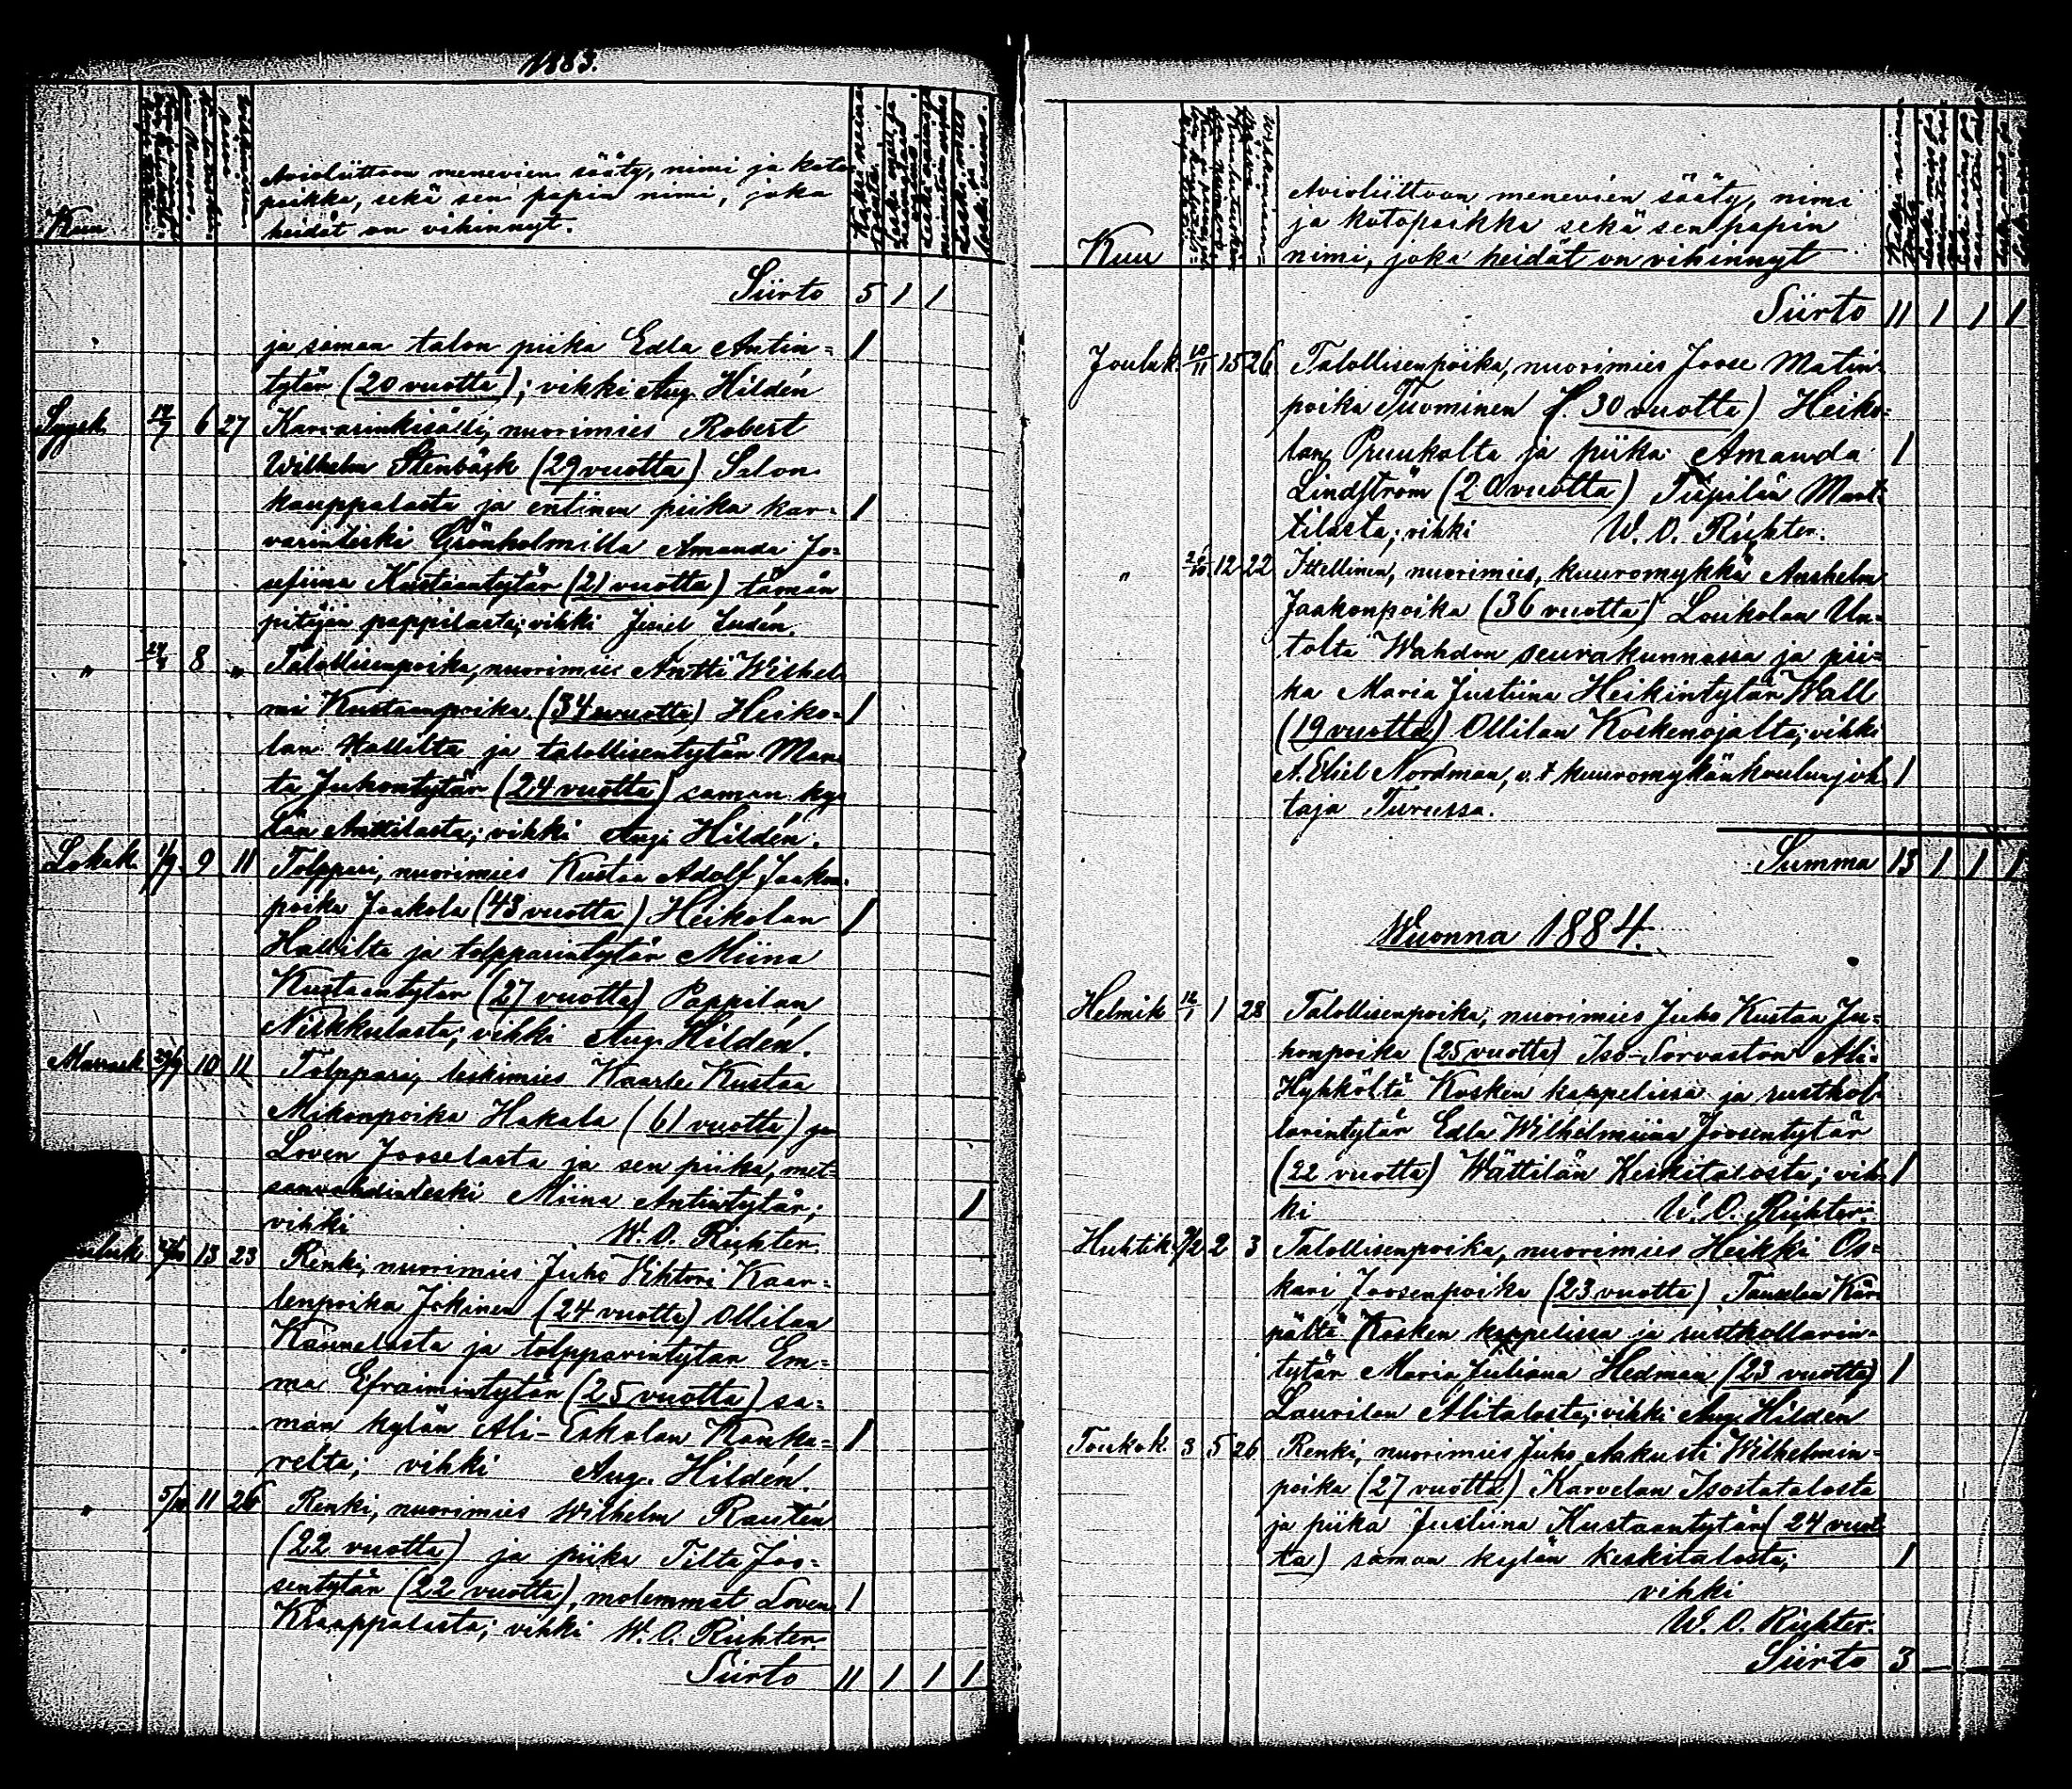 1883.
Kuu
Avioliittoon menevien sääty, nimi ja koto
paikka, sekä sen papin nimi, joka
heidät on vihinnyt.
Siirto 5 1 1
ja saman talon piika Edla Antin= 1
tytär (20 vuotta); vihki Aug. Hildén
Syysk. 6 27 Karvarinkisälli, nuorimies Robert
Wilhelm Stenbäck (29 vuotta) Salon
kauppalasta ja entinen piika kar= 1
varinleski Grönholmilla Amanda Jo=
sefiina Kustaantytär (21 vuotta) tämän
pitäjän pappilasta; vihki
" 8 " Talollisenpoika, nuorimies Antti Wilhel
mi Kustaanpoika (34 vuotta) Heiko= 1
lan Hallilta ja talollisentytär Man
ta Juhontytär (24 vuotta) saman ky
län Anttilasta; vihki Aug. Hildén.
Lokak. 1/9 9 11 Tolppari, nuorimies Kustaa Adolf Jaakon
poika Jaakola (43 vuotta) Heikolan 1
Hallilta ja tolpparintytär Miina
Kustaantytär (27 vuotta) Pappilan
Nikkulasta; vihki Aug. Hildén.
Marrask. 29/9 10 11 Tolppari, leskimies Kaarle Kustaa
Mikonpoika Hakala (61 vuotta) ja
Loven Jooselasta ja sen piika, met=
sanvahdinleski Miina Antintytär; 1
vihki W. O. Richter.
13 23 Renki, nuorimies Juho Vihtori Kaar=
lenpoika Jokinen (24 vuotta) Ollilan
Kannelasta ja tolpparintytär Em=
ma Efraimintytär (25 vuotta) sa=
man kylän Ali-Eskolan Konka= 1
relta; vihki Aug. Hildén.
" 5/10 11 26 Renki, nuorimies Wilhelm Rautén
(22 vuotta) ja piika Tilta Joo=
sentytär (22 vuotta), molemmat Loven 1
Knaappalasta; vihki W. O. Richter.
Siirto 11 1 1 1
Kuu
Avioliittoon menevien sääty, nimi
ja kotopaikka sekä sen papin
nimi, joka heidät on vihinnyt
Siirto 11 1 1 1
Jouluk. 10/11 15 26 Talollisenpoika, nuorimies Joose Matin=
poika Tuominen (30 vuotta) Heiko=
lan Pruukalta ja piika Amanda 1
Lindström (20 vuotta) Tiipilän Mart=
tilasta; vihki W. O. Richter.
" 26/10 12 22 Itellinen, nuorimies, kuuromykkä Anshelm
Jaakonpoika (36 vuotta) Loukolan Un=
tolta Wahdon seurakunnassa ja pii=
ka Maria Justiina Heikintytär Wall
(19 vuotta) Ollilan Koskenojalta; vihki
A. Eliel Nordman, v. t kuuromykänkoulunjoh 1
taja Turussa.
Summa 13 1 1 1
Wuonna 1884.
Helmik 12/1 1 28 Talollisenpoika, nuorimies Juho Kustaa Ju=
honpoika (25 vuotta) Iso-Sorvaston Ali=
Hyhköltä Kosken kappelissa ja rusthol
larintytär Edla Wilhelmiina Joosentytär
(22 vuotta) Wättilän Keskitalosta; vih 1
ki W. O. Richter.
Huhtik. 9/2 2 3 Talollisenpoika, nuorimies Heikki Os=
kari Joosenpoika (23 vuotta) Tauselan Kär
pältä Kosken kappelissa ja rusthollarin=
tytär Maria Juliana Hedman (23 vuotta) 1
Laurilan Alitalosta; vihki Aug. Hildén
Toukok. 3 5 26 Renki, nuorimies Juho Aakusti Wilhelmin=
poika (27 vuotta) Karvelan Isostatalosta
ja piika Justiina Kustaantytär (24 vuot
ta) saman kylän Keskitalosta; 1
vihki
W. O. Richter.
Siirto 3 — — —